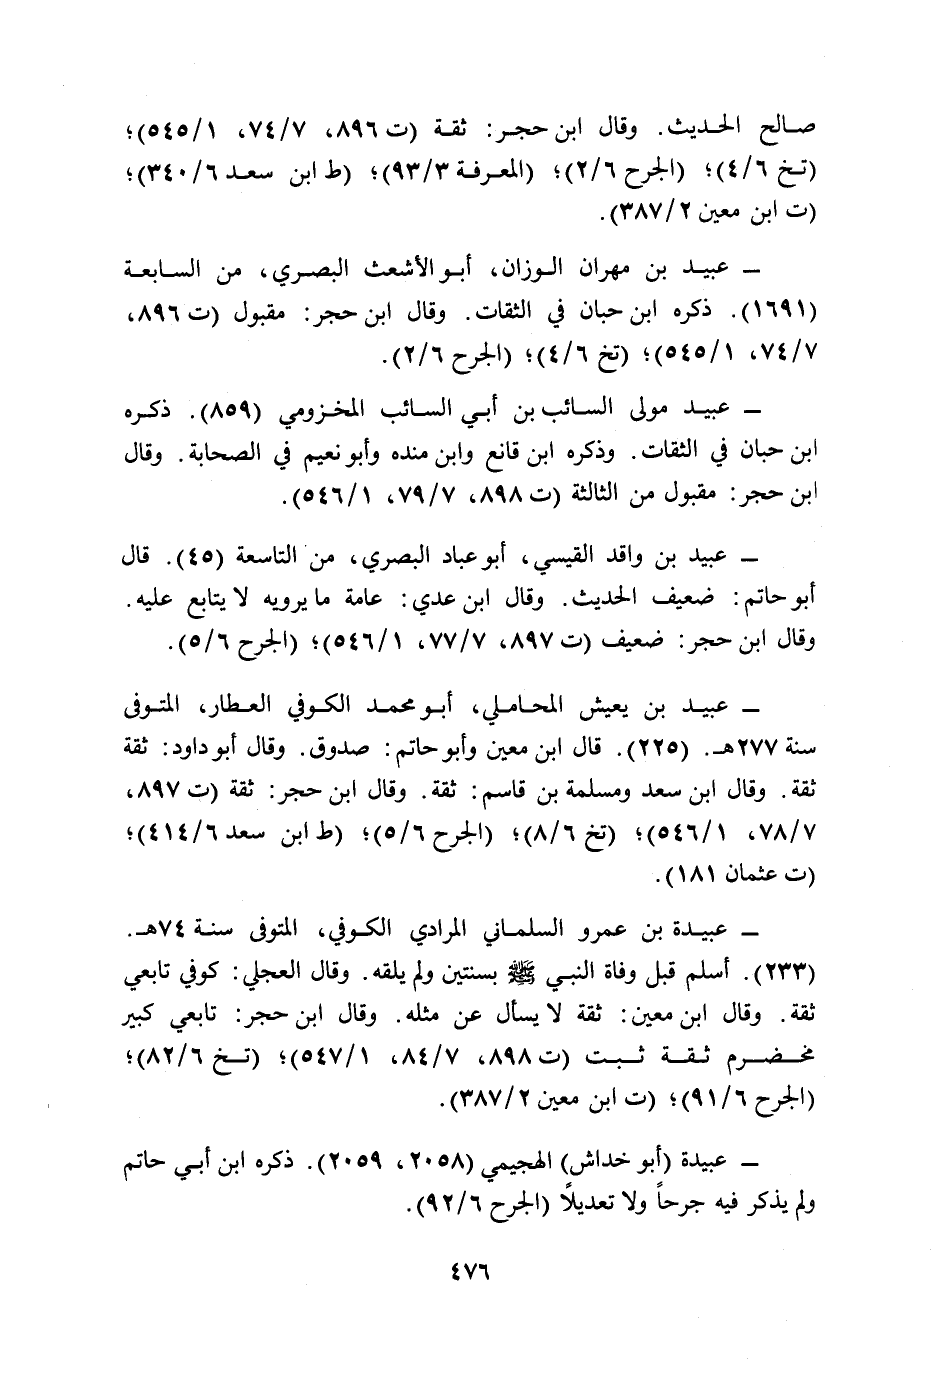 صالح الحديث. وقال ابن حجر: ثقة (ت ٨٩٦، ٧٤/٧، ٥٤٥/١)؛
(تخ ٤/٦)؛ (الجرح ٢/٦)؛ (المعرفة ٩٣/٣)؛ (ط ابن سعد ٣٤٠/٦)؛
(ت ابن معين ٣٨٧/٢).
ــ عبيد بن مهران الوزان، أبو الأشعث البصري، من السابعة
(١٦٩١). ذكره ابن حبان في الثقات. وقال ابن حجر: مقبول (ت ٨٩٦،
٧٤/٧، ٥٤٥/١)؛ (تخ ٤/٦)؛ (الجرح ٢/٦).
ــ عبيد مولى السائب بن أبي السائب المخزومي (٨٥٩). ذكره
ابن حبان في الثقات. وذكره ابن قانع وابن منده وأبو نعيم في الصحابة. وقال
ابن حجر: مقبول من الثالثة (ت ٨٩٨، ٧٩/٧، ٥٤٦/١).
ــ عبيد بن واقد القيسي، أبو عباد البصري، من التاسعة (٤٥). قال
أبو حاتم: ضعيف الحديث. وقال ابن عدي: عامة ما يرويه لا يتابع عليه.
وقال ابن حجر: ضعيف (ت ٨٩٧، ٧٧/٧، ٥٤٦/١)؛ (الجرح ٥/٦).
ــ عبيد بن يعيش المحاملي، أبو محمد الكوفي العطار، المتوفى
سنة ٢٧٧هـ. (٢٢٥). قال ابن معين وأبو حاتم: صدوق. وقال أبو داود: ثقة
ثقة. وقال ابن سعد ومسلمة بن قاسم: ثقة. وقال ابن حجر: ثقة (ت ٨٩٧،
٧٨/٧، ٥٤٦/١)؛ (تخ ٨/٦)؛ (الجرح ٥/٦)؛ (ط ابن سعد ٤١٤/٦)؛
(ت عثمان ١٨١).
ــ عبيدة بن عمرو السلماني المرادي الكوفي، المتوفى سنة ٧٤هـ.
(٢٣٣). أسلم قبل وفاة النبي ﷺ بسنتين ولم يلقه. وقال العجلي: كوفي تابعي
ثقة. وقال ابن معين: ثقة لا يسأل عن مثله. وقال ابن حجر: تابعي كبير
مخضرم ثقة ثبت (ت ٨٩٨، ٨٤/٧، ٥٤٧/١)؛ (تخ ٨٢/٦)؛
(الجرح ٩١/٦)؛ (ت ابن معين ٣٨٧/٢).
ــ عبيدة (أبو خداش) الهجيمي (٢٠٥٨، ٢٠٥٩). ذكره ابن أبي حاتم
ولم يذكر فيه جرحاً ولا تعديلاً (الجرح ٩٢/٦).
٤٧٦